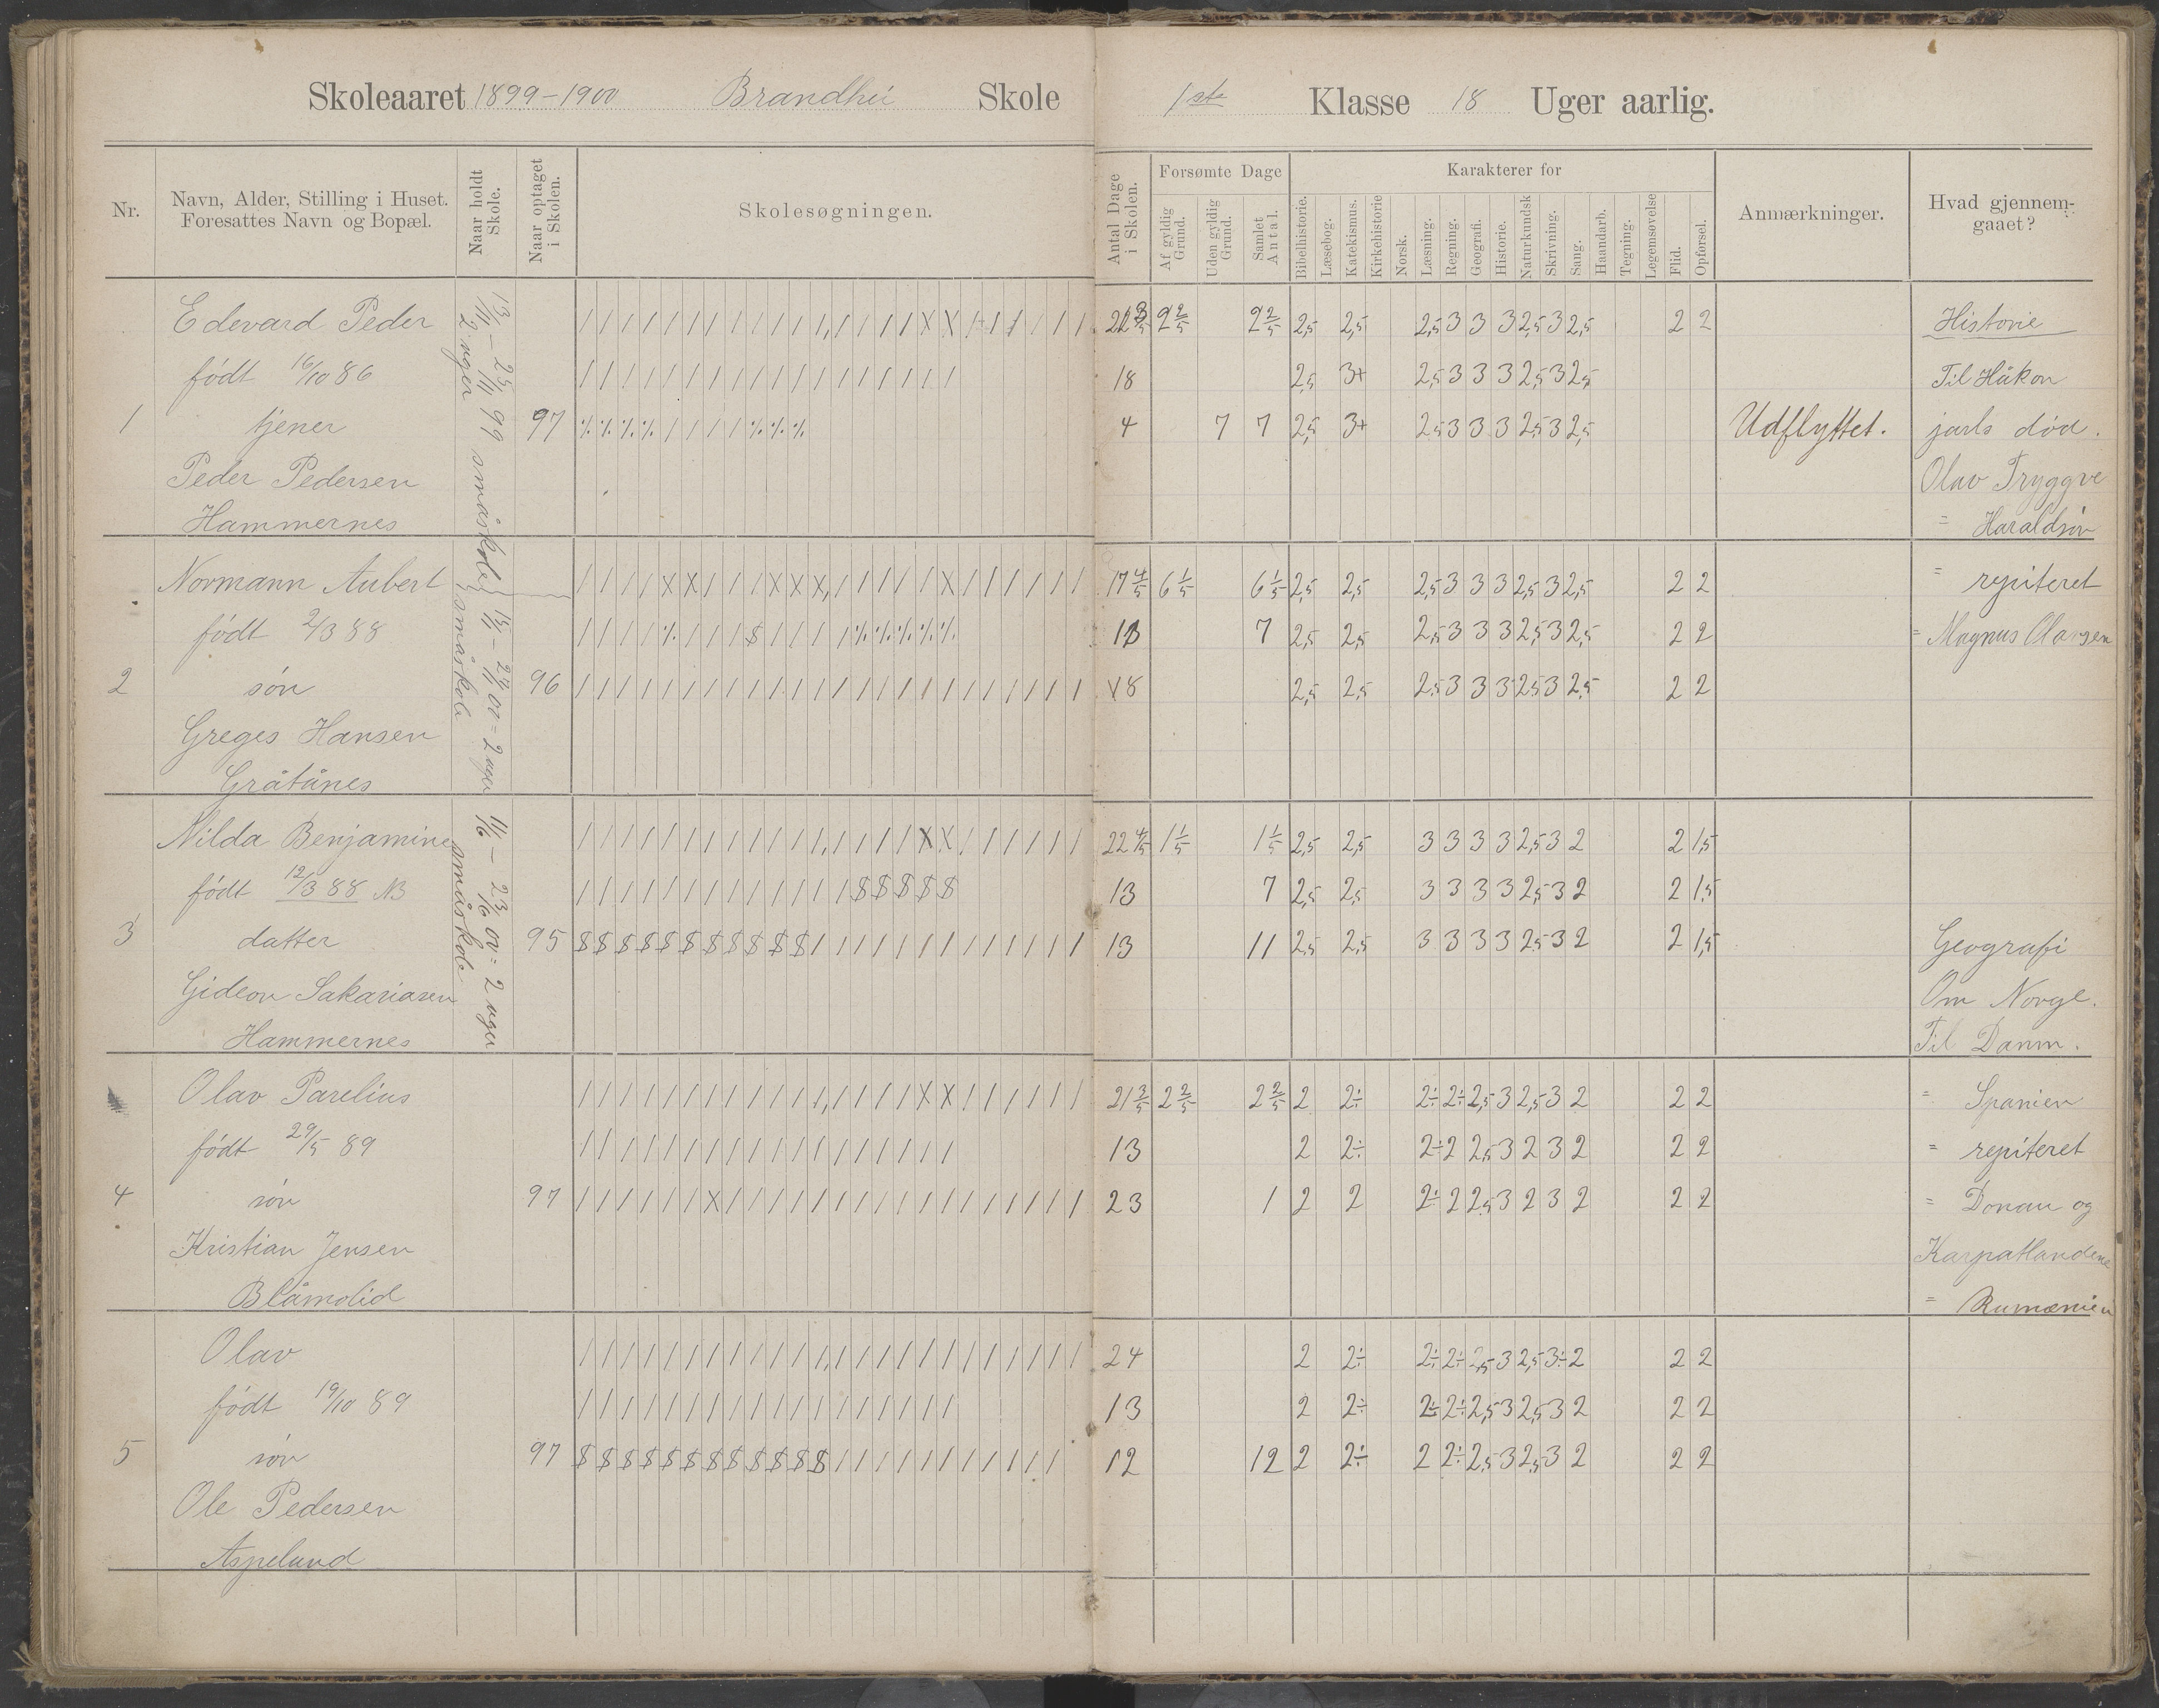 Skoleaaret 1899-1900 Brandhei Skole 1ste Klasse 18 Uger aarlig.
Nr.
Navn, Alder, Stilling i Huset. Foresattes Navn og Bopæl.
Naar holdt Skole.
Naar optaget i Skolen.
Skolesøgningen.
Antal Dage i Skolen.
Forsømte Dage
Af gyldig Grund.
Uden gyldig Grund.
Samlet Antal.
Karakterer for
Bibelhistorie.
Læsebog.
Katekismus.
Kirkehistorie
Norsk.
Læsning.
Regning.
Geografi.
Historie.
Naturkundsk
Skrivning.
Sang.
Haandarb.
Tegning.
Legemsøvelse
Flid.
Opførsel.
Anmærkninger.
Hvad gjennemgaaet?
13/11 - 25/11 99 småskole
2 uger
15/1 - 27/1 00 = 2 uger
småskole
11/6 - 23/6 00 = 2 uger
småskole
Edevard Peder
født 16/10 86
1 tjener 97
Peder Pedersen
Hammernes
9 2/5 9 2/5 2,5 2,5 2,5 3 3 3 2,5 3 2,5 2 2
18 2,5 3+ 2,5 3 3 3 2,5 3 2,5
4 7 7 2,5 3+ 2,5 3 3 3 2,5 3 2,5 Udflyttet.
Normann Aubert
født 2/3 88
2 søn 96
Greges Hansen
Gråtånes
17 4/5 6 1/5 6 1/5 2,5 2,5 2,5 3 3 3 2,5 3 2,5 2 2
7 2,5 2,5 2,5 3 3 3 2,5 3 2,5 2 2
18 2,5 2,5 2,5 3 3 3 2,5 3 2,5 2 2
Nilda Benjamine
født 12/3 88 NB
3 datter 95
Gideon Sakariasen
Hammernes
22 4/5 1 1/5 1 1/5 2,5 2,5 3 3 3 3 2,5 3 2 2 1,5
13 7 2,5 2,5 3 3 3 3 2,5 3 2 2 1,5
13 11 2,5 2,5 3 3 3 3 2,5 3 2 2 1,5
Olav Parelius
født 29/5 89
4 søn 97
Kristian Jensen
Blåmolid
21 3/5 2 2/5 2 2/5 2 2÷ 2÷ 2÷ 2,5 3 2,5 3 2 2 2
13 2 2÷ 2÷ 2 2,5 3 2 3 2 2 2
23 1 2 2 2÷ 2 2,5 3 2 3 2 2 2
Olav
født 19/10 89
5 søn 97
Ole Pedersen
Aspelund
24 2 2÷ 2÷ 2÷ 2,5 3 2,5 3÷ 2 2 2
13 2 2÷ 2÷ 2÷ 2,5 3 2,5 3 2 2 2
12 12 2 2÷ 2 2÷ 2,5 3 2,5 3 2 2 2
Historie
Til Håkon
jarls død.
Olav Tryggve
= Haraldsøn
= repiteret
= Magnus Olavsen
Geografi
Om Norge.
Til Danm.
= Spanien
= repiteret
= Donau og
Karpatlandene
= Rumænien